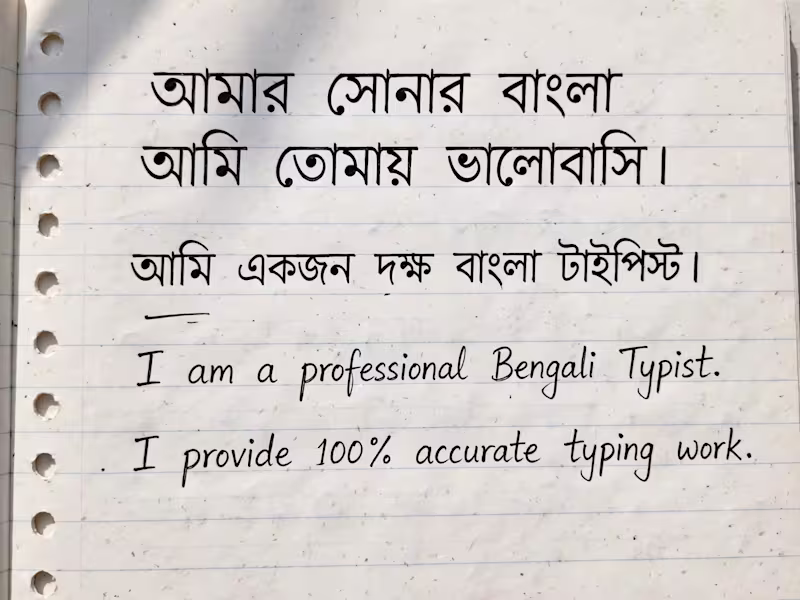 আমার সোনার বাংলা
আমি তোমায় ভালোবাসি।
আমি একজন দক্ষ বাংলা টাইপিস্ট।
I am a professional Bengali Typist.
I provide 100% accurate typing work.